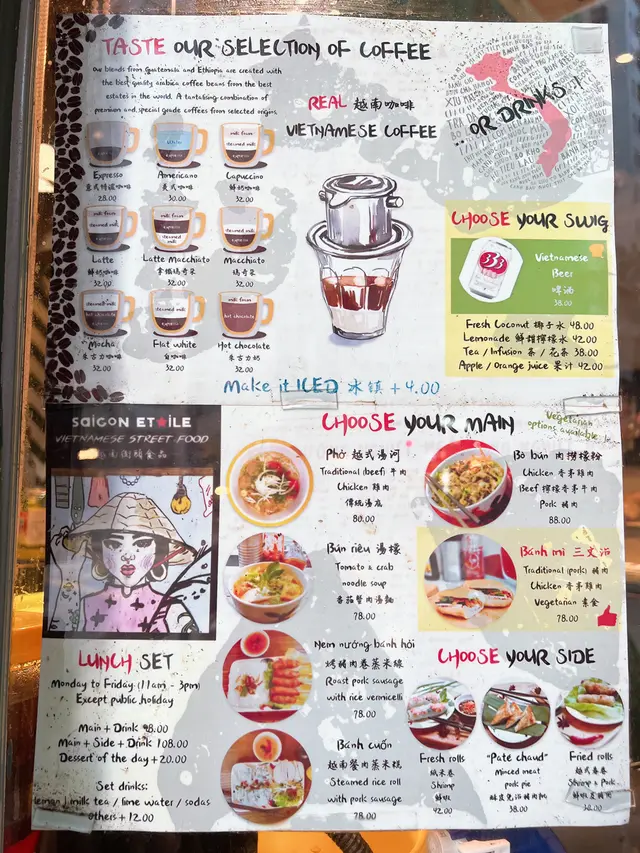 TASTE OUR SELECTION OF COFFEE
Our blends from Guatemala and Ethiopia are created with
the best quality arabica coffee beans from the best
estates in the world. A tantalising combination of
premium and special grade coffees from selected origins.
REAL 越南咖啡
VIETNAMESE COFFEE
...OR DRINKS!
Espresso
意式特濃咖啡
28.00
water
espresso
Americano
美式咖啡
30.00
milk foam
steamed milk
espresso
Capuccino
鮮奶咖啡
32.00
milk foam
steamed milk
espresso
Latte
鮮奶咖啡
32.00
milk foam
espresso
steamed milk
Latte Macchiato
拿鐵瑪奇朵
32.00
milk foam
espresso
Macchiato
瑪奇朵
32.00
steamed milk
hot chocolate
espresso
Mocha
朱古力咖啡
32.00
steamed milk
espresso
Flat white
白咖啡
32.00
milk foam
hot chocolate
Hot chocolate
朱古力奶
32.00
CHOOSE YOUR SWIG
333
Vietnamese
Beer
啤酒
38.00
Fresh Coconut 椰子水 48.00
Lemonade 鮮甜檸檬水 42.00
Tea / Infusion 茶 / 花茶 38.00
Apple / Orange juice 果汁 42.00
Make it ICED 冰鎮 + 4.00
SAIGON ETOILE
VIETNAMESE STREET FOOD
越南街頭食品
CHOOSE YOUR MAIN
Vegetarian
options available!
Phở 越式湯河
Traditional (beef) 牛肉
Chicken 雞肉
傳統湯底
80.00
Bò bún 肉撈檬粉
Chicken 香茅雞肉
Beef 檸檬香茅牛肉
Pork 豬肉
88.00
Bún riêu 湯檬
Tomato & crab
noodle soup
番茄蟹肉湯麵
78.00
Bánh mì 三文治
Traditional (pork) 豬肉
Chicken 香茅雞肉
Vegetarian 素食
78.00
Nem nướng bánh hỏi
烤豬肉卷蒸米線
Roast pork sausage
with rice vermicelli
78.00
Bánh cuốn
越南扎肉蒸米卷
Steamed rice roll
with pork sausage
78.00
LUNCH SET
Monday to Friday (11am - 3pm)
Except public holiday
Main + Drink 98.00
Main + Side + Drink 108.00
Dessert of the day + 20.00
Set drinks:
lemon / milk tea / lime water / sodas
others + 12.00
CHOOSE YOUR SIDE
Fresh rolls
紙米卷
Shrimp
鮮蝦
42.00
"Pate chaud"
Minced meat
pork pie
38.00
Fried rolls
越式春卷
Shrimp & Pork
38.00